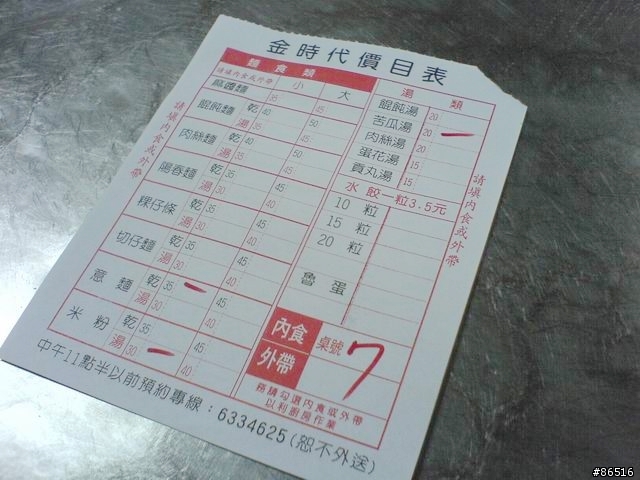 金時代價目表
麵食類
請填內食或外帶 小 大
麻醬麵 35 45
餛飩麵 乾 40 50
湯 35 45
肉絲麵 乾 40 50
湯 35 45
陽春麵 乾 35 45
湯 30 40
粿仔條 乾 35 45
湯 30 40
切仔麵 乾 35 45
湯 30 40
意麵 乾 35 一 45
湯 30 40
米粉 乾 35 45
湯 30 一 40
請填內食或外帶
湯類
餛飩湯 20
苦瓜湯 20 一
肉絲湯 20
蛋花湯 15
貢丸湯 15
水餃一粒3.5元
10 粒
15 粒
20 粒
魯蛋
請填內食或外帶
內食
外帶
桌號
7
務請勾選內食或外帶
以利廚房作業
中午11點半以前預約專線：6334625(恕不外送)
#86516